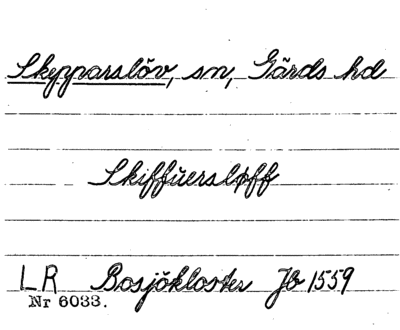 Skepparslöv, sn, Gärds hd
Skiffüersløff
LR Bosjökloster Jb 1559
Nr 6033.